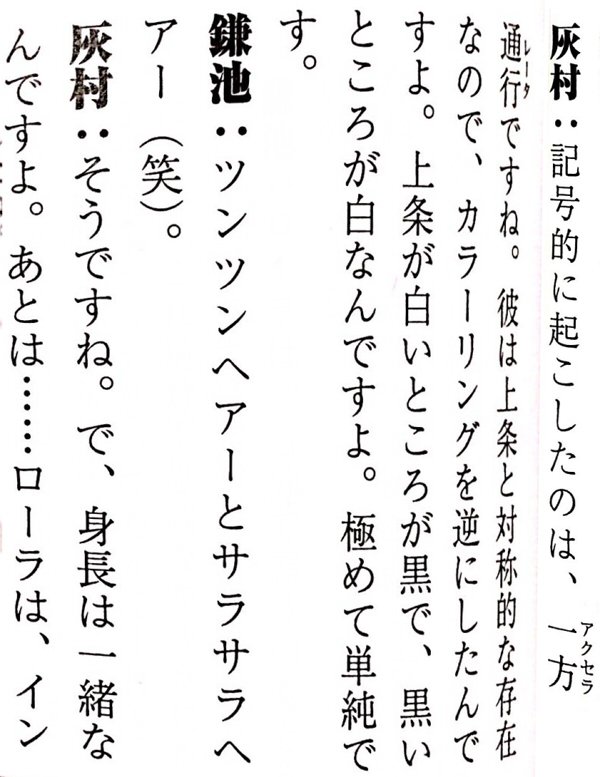 灰村：記号的に起こしたのは、一方
アクセラ
通行ですね。彼は上条と対称的な存在
レータ
なので、カラーリングを逆にしたんで
すよ。上条が白いところが黒で、黒い
ところが白なんですよ。極めて単純で
す。
鎌池：ツンツンヘアーとサラサラヘ
アー（笑）。
灰村：そうですね。で、身長は一緒な
んですよ。あとは……ローラは、イン